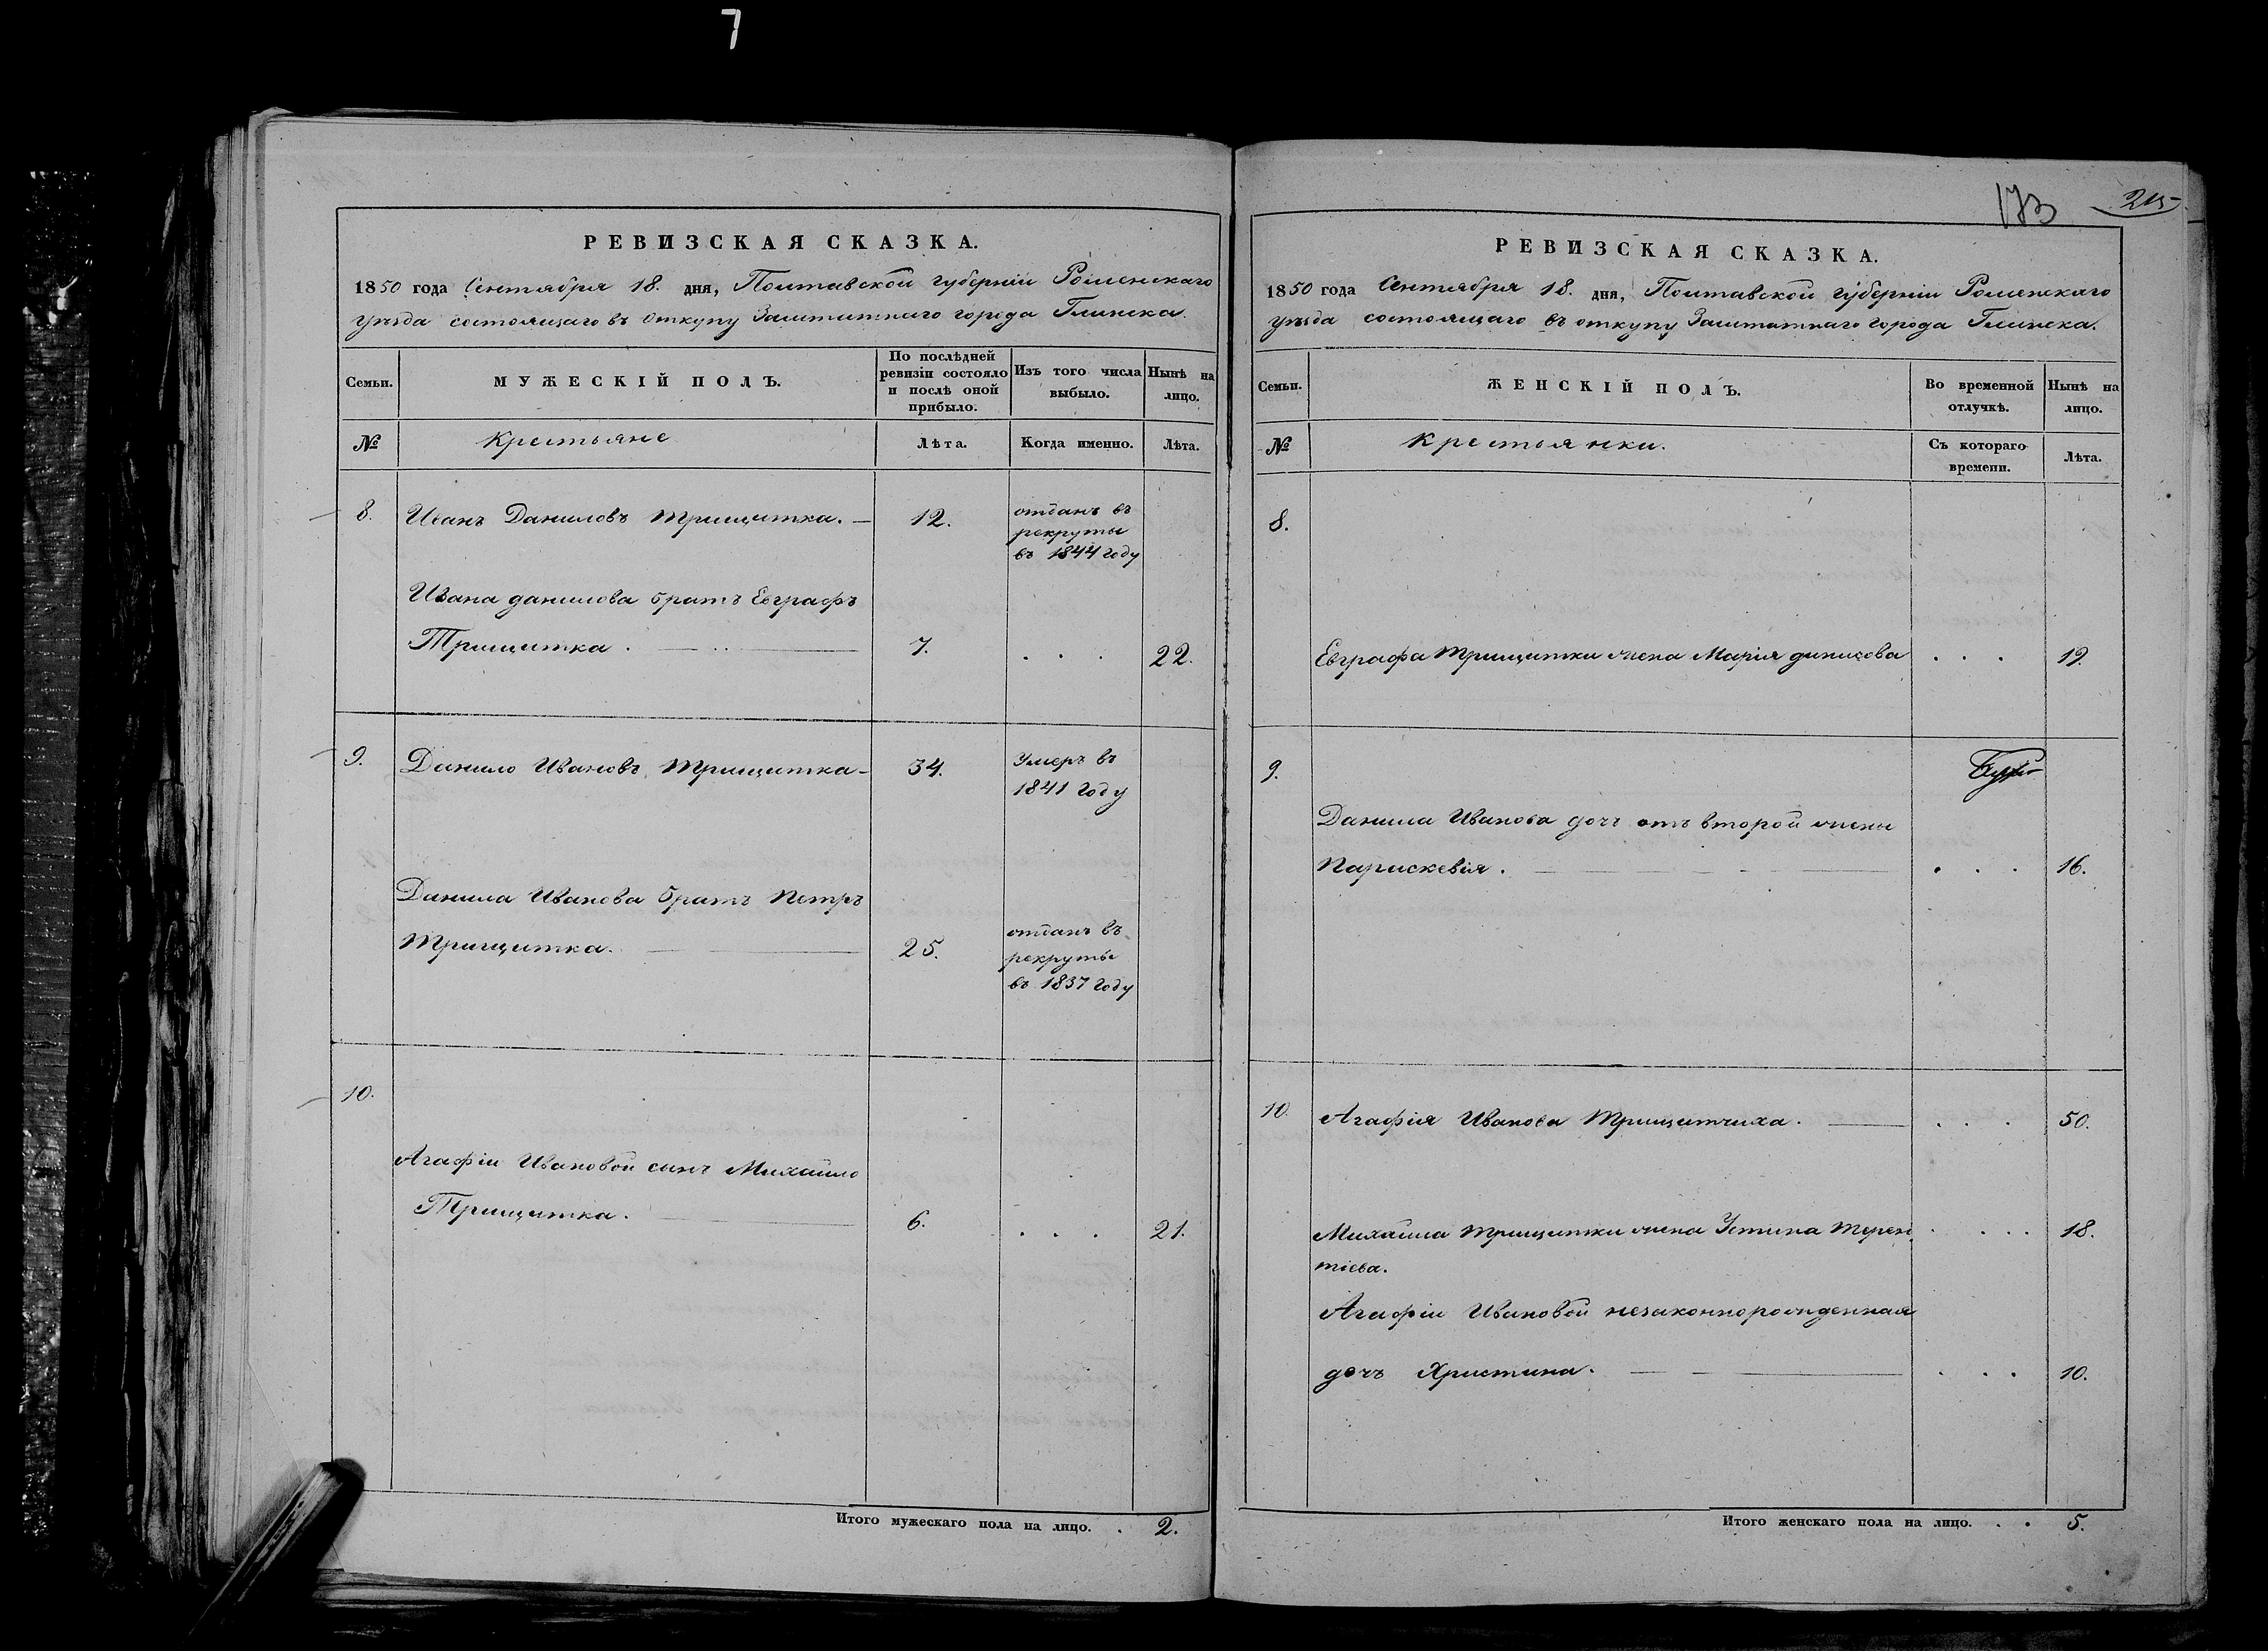 7
РЕВИЗСКАЯ СКАЗКА.
1850 года Сентября 18. дня, Полтавской губерніи Роменскаго
уѣзда состоящаго въ откупу Заштатнаго города Глинска.
Семьи.
МУЖЕСКІЙ ПОЛЪ.
По послѣдней
ревизіи состояло
и послѣ оной
прибыло.
Изъ того числа
выбыло.
Нынѣ на
лицо.
№
Крестьяне
Лѣта.
Когда именно.
Лѣта.
8. Иванъ Даниловъ Трищитка. 12. отданъ въ
рекруты
въ 1844 году
Ивана данилова братъ Евграфъ
Трищитка. 7. . . . 22.
9. Данило Ивановъ Трищитка 34. Умеръ въ
1841 году
Данила Иванова братъ Петръ
Трищитка. 25. отданъ въ
рекруты
въ 1837 году
10.
Агафіи Ивановой сынъ Михайло
Трищитка. 6. . . . 21.
Итого мужескаго пола на лицо. . 2.
173
215
РЕВИЗСКАЯ СКАЗКА.
1850 года Сентября 18. дня, Полтавской губерніи Роменскаго
уѣзда состоящаго въ откупу Заштатнаго города Глинска.
Семьи.
ЖЕНСКІЙ ПОЛЪ.
Во временной
отлучкѣ.
Нынѣ на
лицо.
№
Крестьянки.
Съ котораго
времени.
Лѣта.
8.
Евграфа Трищитки жена Марія . . . 19.
9.
Данила Иванова дочь отъ второй жены
Параскевія. . . . 16.
10. Агафія Иванова Трищитчиха. . . . 50.
Михайла Трищитки жена Устина Терен
тіева. . . . 18.
Агафіи Ивановой незаконнорожденная
дочь Христина. . . . 10.
Итого женскаго пола на лицо. . . 5.